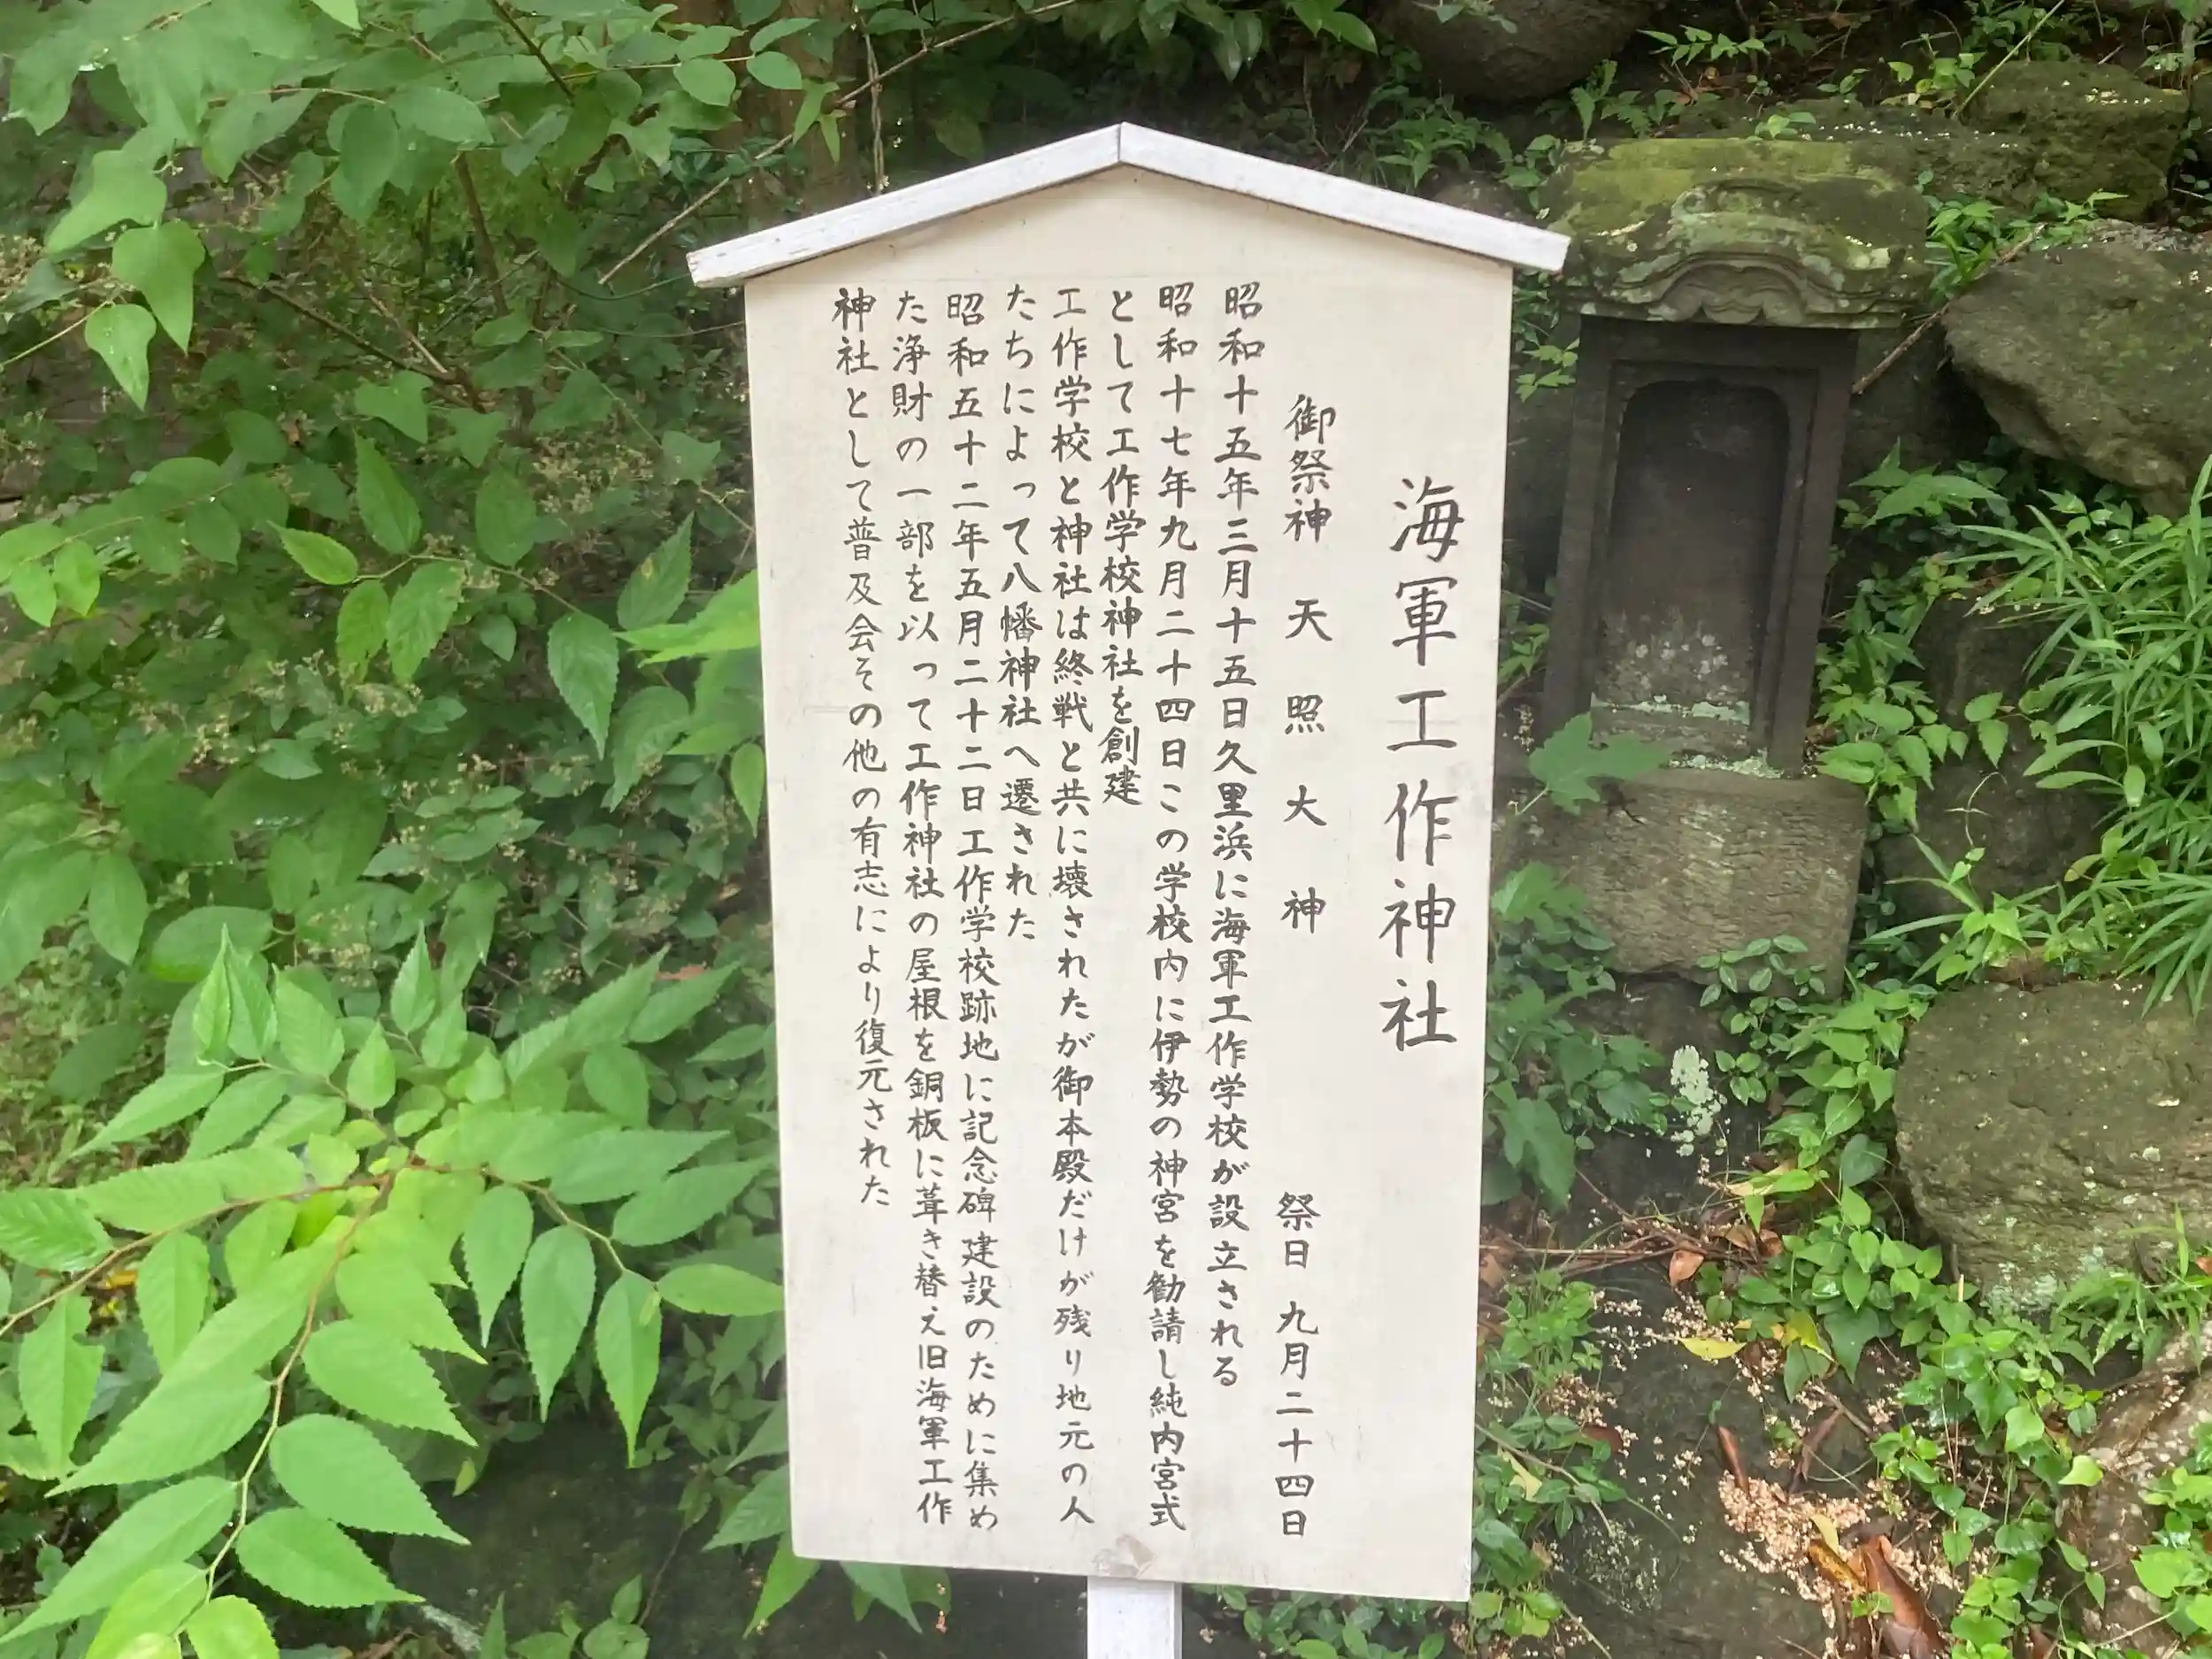 海軍工作神社
御祭神 天照大神 祭日 九月二十四日
昭和十五年三月十五日久里浜に海軍工作学校が設立される
昭和十七年九月二十四日この学校内に伊勢の神宮を勧請し純内宮式
として工作学校神社を創建
工作学校と神社は終戦と共に壊されたが御本殿だけが残り地元の人
たちによって八幡神社へ遷された
昭和五十二年五月二十二日工作学校跡地に記念碑建設のために集め
た浄財の一部を以って工作神社の屋根を銅板に葺き替え旧海軍工作
神社として普及会その他の有志により復元された